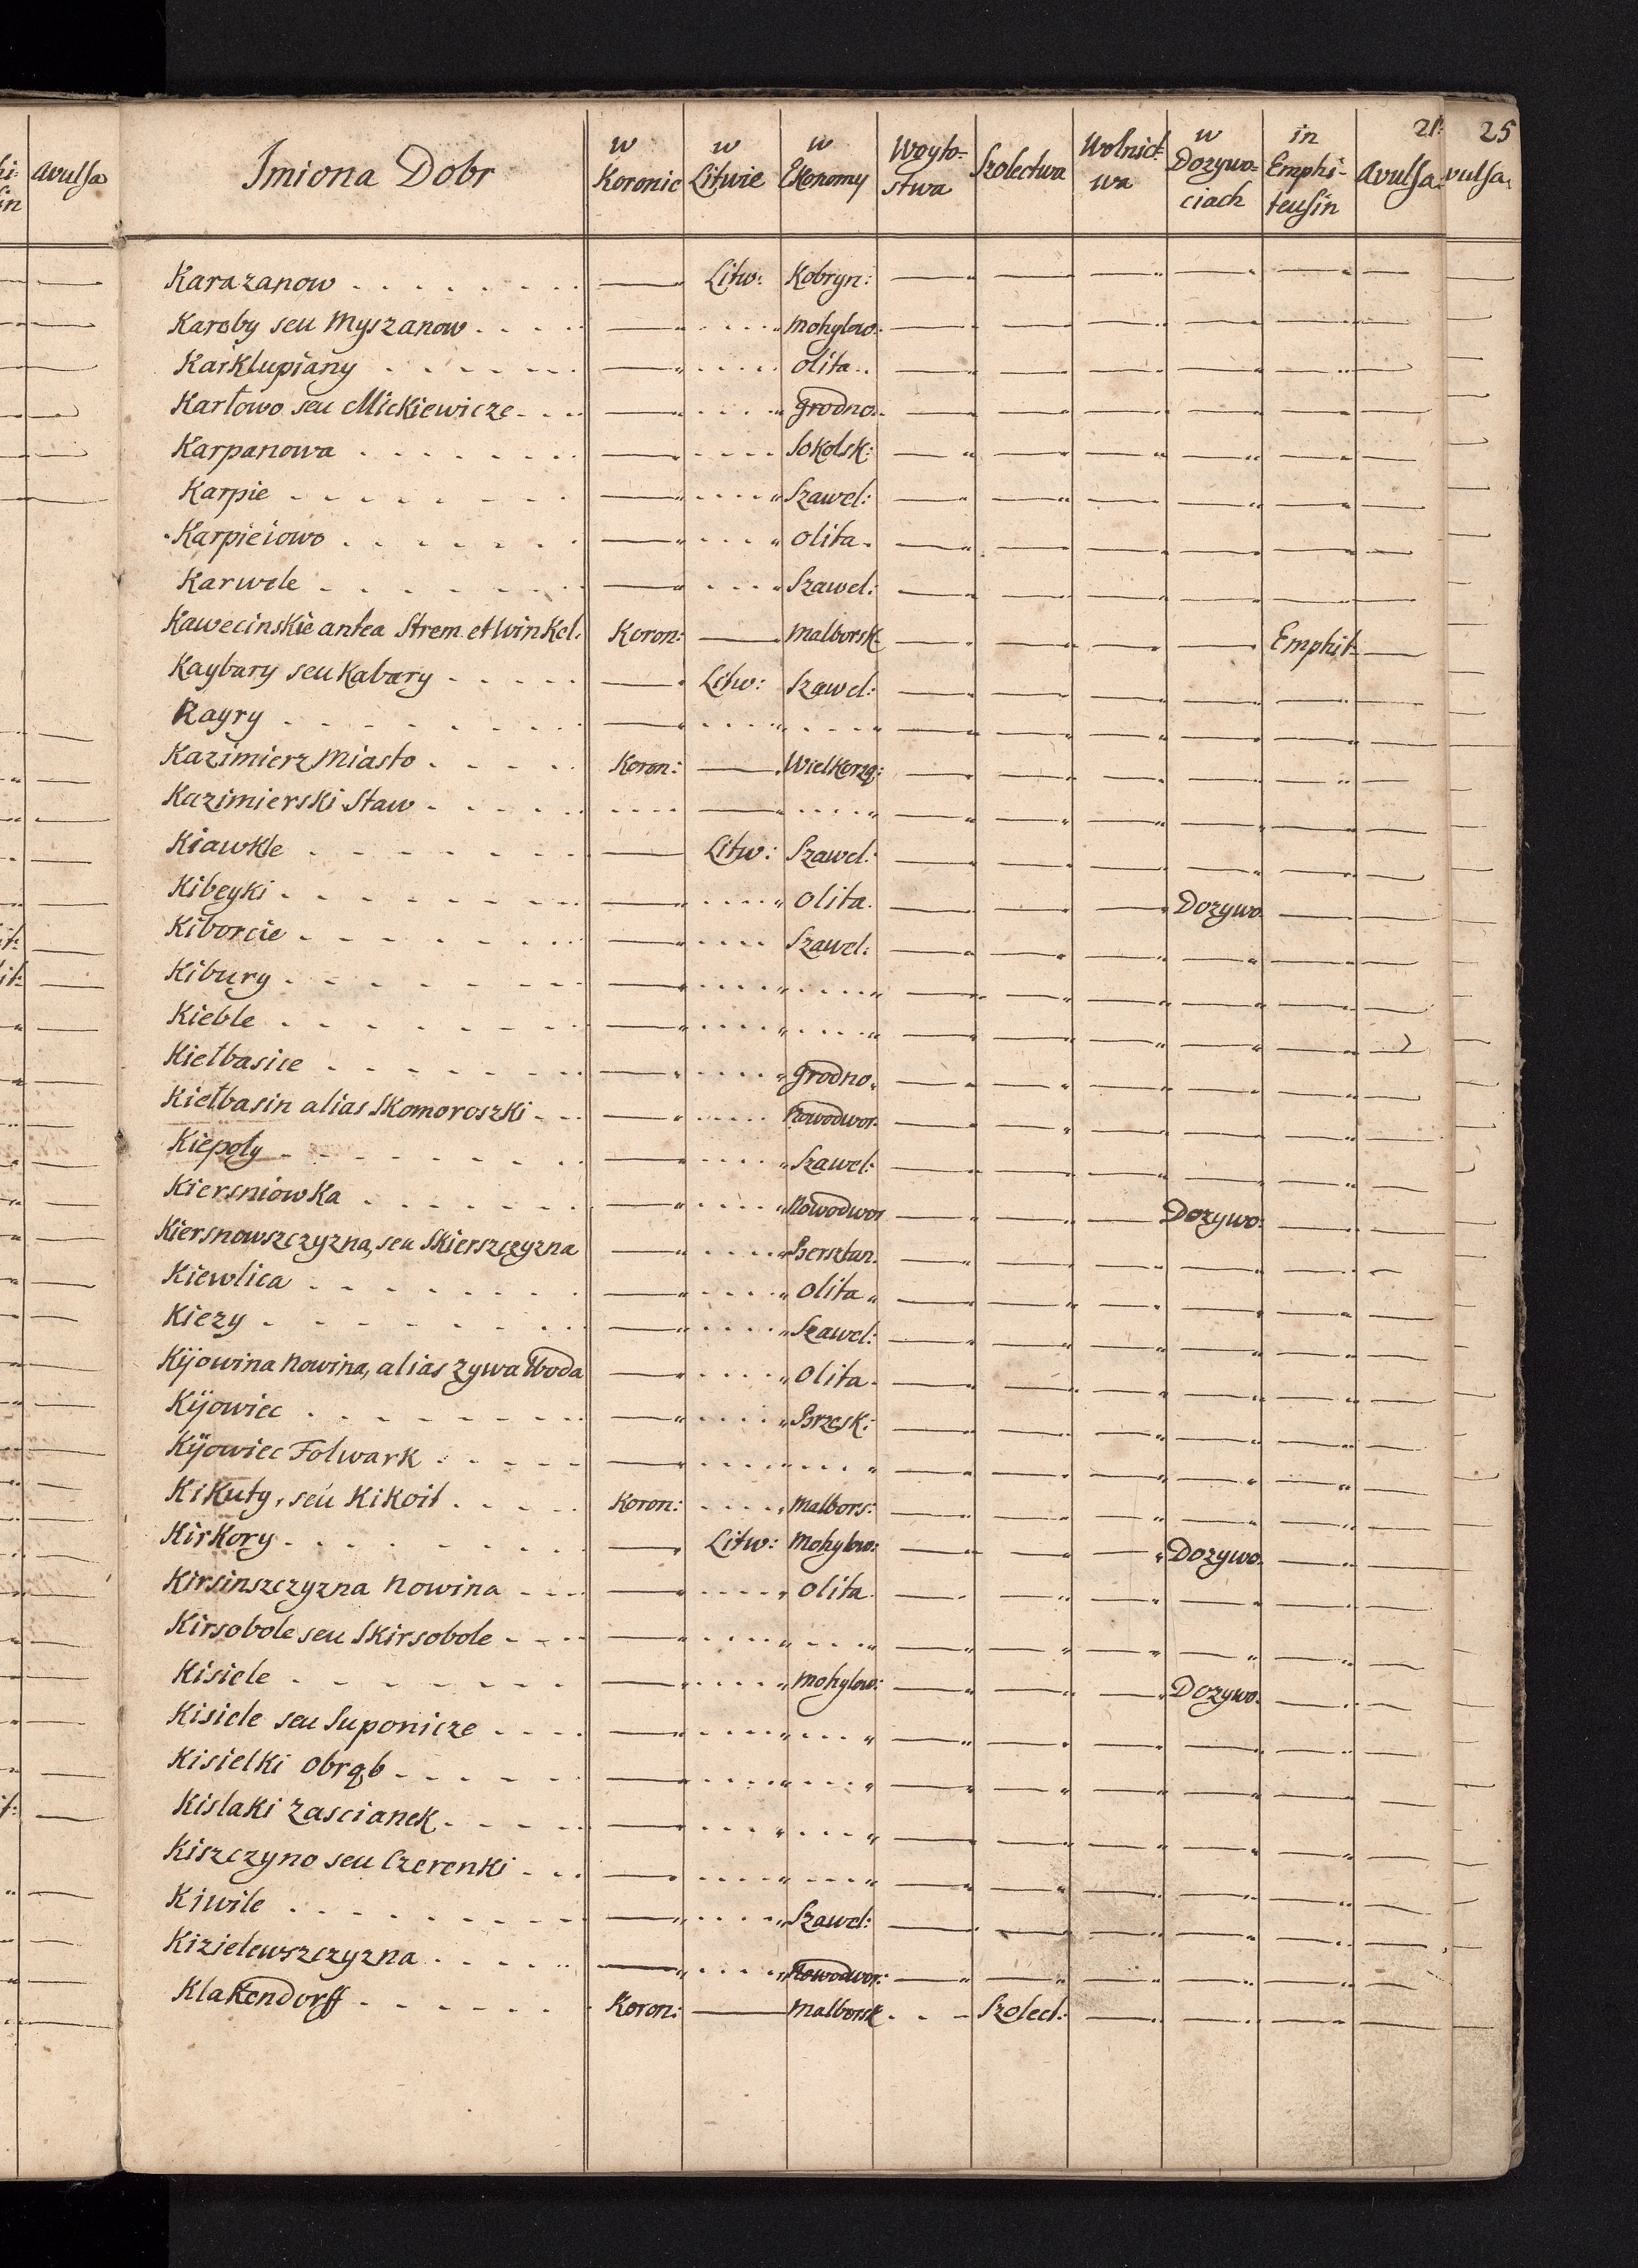 21. 25
Imiona Dobr | w Koronie | w Litwie | w Ekonomy | Woyto-stwa | Szolectwa | Wolnict-wa | w Dozywo-ciach | in Emphi-teusin | Avulsa
avulsa
vulsa
Karazanow . . . . . . . . — Litw: Kobryn: — — — — — —
Karoby seu Myszanow . . . . — . . . . „ Mohylow: — — — — — —
Karklupiany . . . . . . — . . . . Olita . . — — — — — —
Karłowo seu Mickiewicze . . . . — . . . . „ Grodno. — — — — — —
Karpanowa . . . . . . . — . . . . Sokolsk: — — — — — —
Karpie . . . . . . . . — . . . . „ Szawel: — — — — — —
Karpieiowo . . . . . . . — . . . . „ Olita. — — — — — —
Karwele . . . . . . . — . . . . „ Szawel: — — — — — —
Kawecinskie antea Strem. et Winkel. Koron: — Malborsk. — — — — Emphit: —
Kaybary seu Kabary . . . . . — Litw: Szawel: — — — — — —
Kayry . . . . . . . . — . . . . „ . . . . „ — — — — — —
Kazimierz Miasto . . . . . Koron: — Wielkorzą: — — — — — —
Kazimierski Staw . . . . . . . . . — . . . . „ — — — — — —
Kiawkle . . . . . . . — Litw: Szawel: — — — — — —
Kibeyki . . . . . . . . — . . . . „ Olita. — — — Dozywo. — —
Kiborcie . . . . . . . — . . . . Szawel: — — — — — —
Kibury . . . . . . . . — . . . . „ . . . . „ — — — — — —
Kieble . . . . . . . . — . . . . „ . . . . „ — — — — — —
Kiełbasice . . . . . . . — . . . . „ Grodno. — — — — — —
Kiełbasin alias Skomoroszki . . . — . . . . Nowodwor. — — — — — —
Kiepoły . . . . . . . . — . . . . „ Szawel: — — — — — —
Kiersniowka . . . . . . — . . . . „ Nowodwor — — — Dozywo: — —
Kiersnowszczyzna, seu Skierszczyzna — . . . . „ Bersztan. — — — — — —
Kiewlica . . . . . . . — . . . . „ Olita „ — — — — — —
Kiezy . . . . . . . . — . . . . „ Szawel: — — — — — —
Kijowina Nowina, alias Zywa Woda — . . . . „ Olita. — — — — — —
Kijowiec . . . . . . . . — . . . . „ Brzesk: — — — — — —
Kijowiec Folwark . . . . . — . . . . „ . . . „ — — — — — —
Kikuty, seu Kikoit . . . . . Koron: . . . . „ Malbors: — — — — — —
Kirkory . . . . . . . . — Litw: Mohylow: — — — Dozywo. — —
Kirsinszczyzna Nowina . . . . — . . . . „ Olita. — — — — — —
Kirsobole seu Skirsobole . . . . — . . . . „ . . . „ — — — — — —
Kisiele . . . . . . . — . . . . „ Mohylow: — — — Dozywo. — —
Kisiele seu Suponicze . . . . — . . . . „ . . . „ — — — — — —
Kisielki Obrąb . . . . . — . . . . „ . . . „ — — — — — —
Kislaki Zascianek . . . . . — . . . . „ . . . „ — — — — — —
Kiszczyno seu Czerenki . . . — . . . . „ . . . . „ — — — — — —
Kiwile . . . . . . . . — . . . . „ Szawel: — — — — — —
Kizielewszczyzna . . . . . — . . . . „ Nowodwor: — — — — — —
Klakendorff . . . . . . Koron: — Malborsk . . . Szolect: — — — —